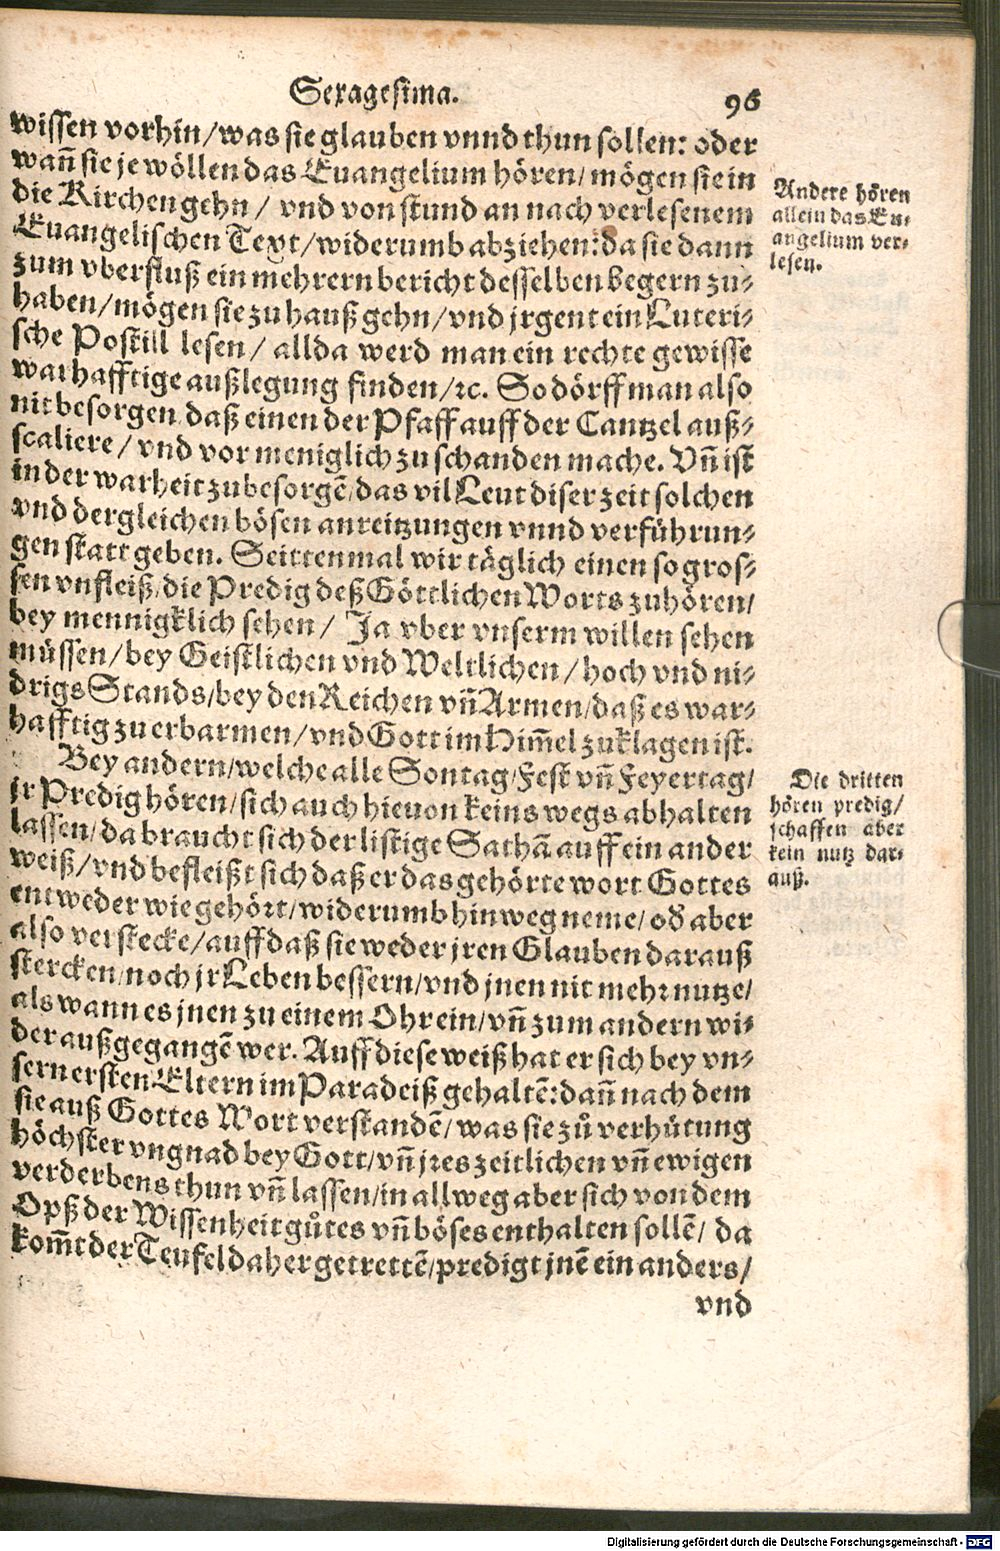 Sexagesima. 96
wissen vorhin/was sie glauben vnnd thun sollen: oder
wañ sie je wöllen das Euangelium hören/ mögen sie in
die Kirchen gehn / vnd von stund an nach verlesenem
Euangelischen Text/widerumb abziehen:da sie dann
zum vberfluß ein mehrern bericht desselben begern zu-
haben/mögen sie zu hauß gehn/vnd jrgent ein Luteri-
sche Postill lesen/ allda werd man ein rechte gewisse
warhafftige außlegung finden/ꝛc. So dörff man also
nit besorgen daß einen der Pfaff auff der Cantzel auß-
scaliere/ vnd vor meniglich zu schanden mache. Vñ ist
in der warheit zubesorgẽ/das vil Leut diser zeit solchen
vnd dergleichen bösen anreitzungen vnnd verführun-
gen statt geben. Seittenmal wir täglich einen so gros-
sen vnfleiß/die Predig deß Göttlichen Worts zuhören/
bey mennigklich sehen/ Ja vber vnserm willen sehen
müssen/bey Geistlichen vnd Weltlichen/hoch vnd ni-
drigs Stands/bey den Reichen vñ Armen/daß es war-
hafftig zu erbarmen/vnd Gott im Him̃el zuklagen ist.
Bey andern/welche alle Sontag/Fest vñ Feyertag/
jr Predig hören/sich auch hieuon keins wegs abhalten
lassen/da braucht sich der listige Sathã auff ein ander
weiß/vnd befleißt sich daß er das gehörte wort Gottes
entweder wie gehört/widerumb hinweg neme/od̃ aber
also verstecke/auff daß sie weder jren Glauben darauß
stercken/noch jr Leben bessern/vnd jnen nit mehr nutze/
als wann es jnen zu einem Ohr ein/vñ zum andern wi-
der außgegangẽ wer. Auff diese weiß hat er sich bey vn-
sern ersten Eltern im Paradeiß gehaltẽ:dañ nach dem
sie auß Gottes Wort verstandẽ/was sie zů verhütung
höchster vngnad bey Gott/vñ jres zeitlichen vñ ewigen
verderbens thun vñ lassen/in allweg aber sich von dem
Opß der Wissenheit gůtes vñ böses enthalten sollẽ/ da
kom̃t der Teufel daher getrettẽ/predigt jnẽ ein anders/
vnd
Andere hören
allein das Eu-
angelium ver-
lesen.
Die dritten
hören predig/
schaffen aber
kein nutz dar-
auß.
Digitalisierung gefördert durch die Deutsche Forschungsgemeinschaft - DFG